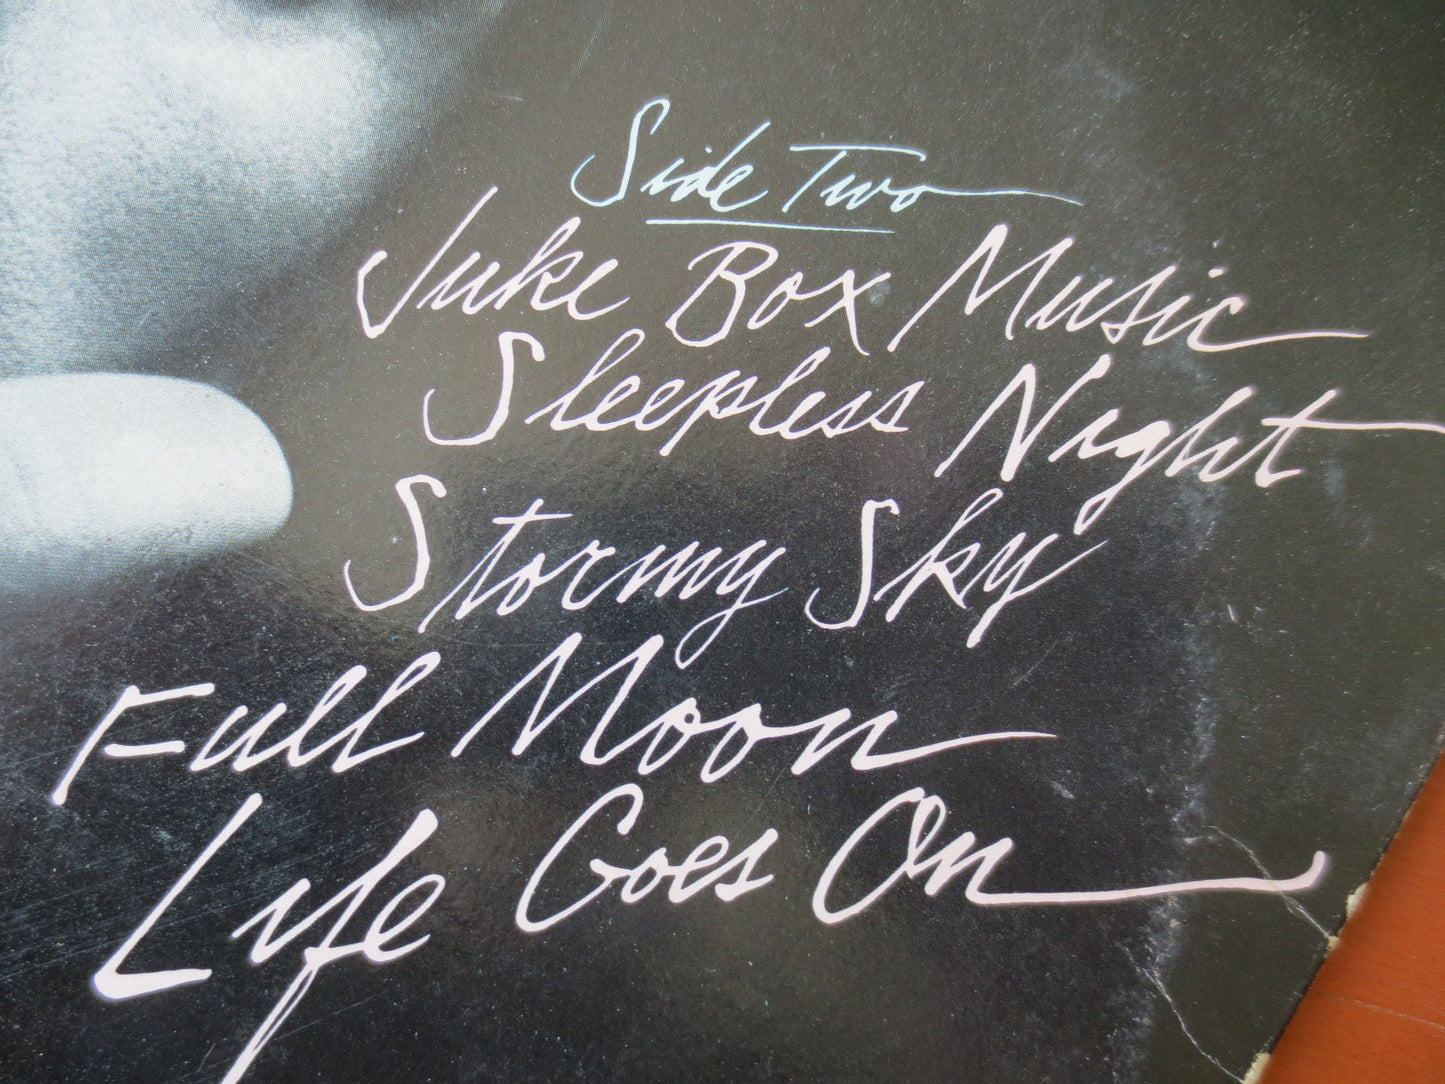 Side Two
Juke Box Music
Sleepless Night
Stormy Sky
Full Moon
Life Goes On